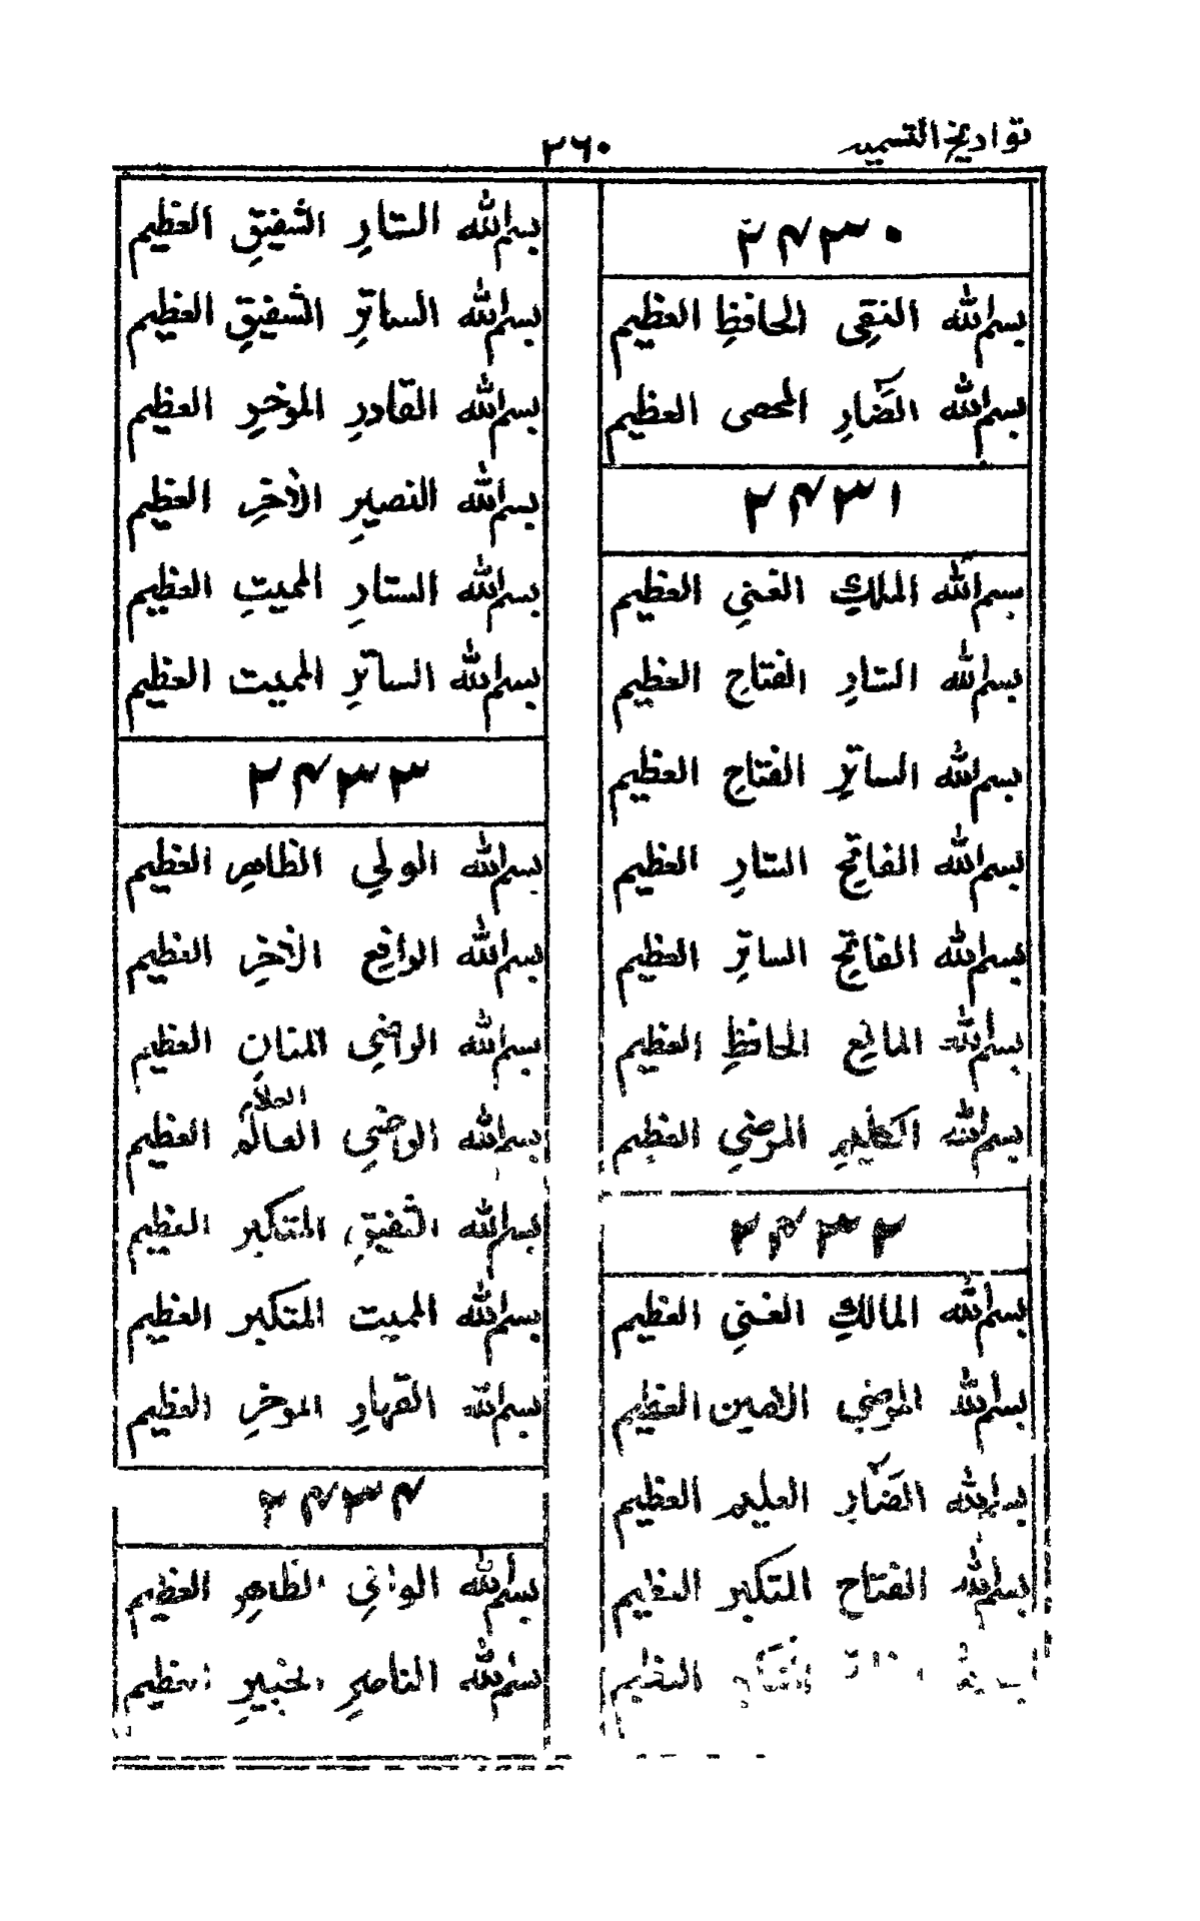 تواريخ التسميه
٢٦٠
٢٤٣٠
بسم الله النقي الحافظِ العظيم
بسم الله الضَّارِ المحصی العظيم
٢٤٣١
بسم الله الملكِ الغني العظيم
بسم الله الستارِ الفتاحِ العظيم
بسم الله الساترِ الفتاحِ العظيم
بسم الله الفاتحِ الستارِ العظيم
بسم الله الفاتحِ الساترِ العظيم
بسم الله المانعِ الحافظِ العظيم
بسم الله المرضيِ العظيم
٢٤٣٢
بسم الله المالكِ الغنيِ العظيم
بسم الله المرضيِ الامين العظيم
بسم الله الضَّارِ العليم العظيم
بسم الله الفتاح المتكبر العظيم
العظيم
بسم الله الستارِ الشفيقِ العظيم
بسم الله الساترِ الشفيقِ العظيم
بسم الله القادرِ الموخرِ العظيم
بسم الله النصيرِ الآخرِ العظيم
بسم الله الستارِ المميتِ العظيم
بسم الله الساترِ المميت العظيم
٢٤٣٣
بسم الله الولي الظاهرِ العظيم
بسم الله الرافعِ الآخرِ العظيم
بسم الله الراضيِ المنانِ العظيم
العلام
بسم الله الراضيِ العالم العظيم
بسم الله الشفيقِ المتكبر العظيم
بسم الله المميت المتكبر العظيم
بسم الله القهارِ الموخرِ العظيم
٢٤٣٤
بسم الله الظاهرِ العظيم
بسم الله الناصرِ الخبيرِ العظيم